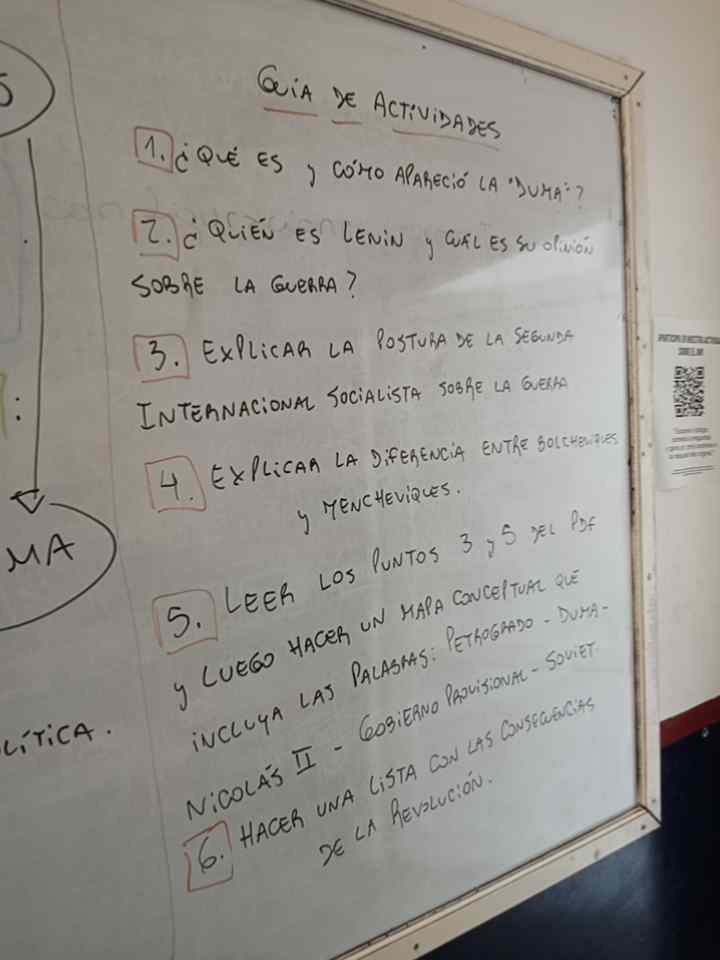 S
GUÍA DE ACTIVIDADES
1. ¿QUÉ ES y CÓMO APARECIÓ LA "DUMA"?
2. ¿QUIÉN ES LENIN y CUÁL ES SU OPINIÓN
SOBRE LA GUERRA?
3. EXPLICAR LA POSTURA DE LA SEGUNDA
INTERNACIONAL SOCIALISTA SOBRE LA GUERRA
4. EXPLICAR LA DIFERENCIA ENTRE BOLCHEVIQUES
y MENCHEVIQUES.
:
MA
5. LEER LOS PUNTOS 3 y 5 DEL PDF
y LUEGO HACER UN MAPA CONCEPTUAL QUE
INCLUYA LAS PALABRAS: PETROGRADO - DUMA -
NICOLÁS II - GOBIERNO PROVISIONAL - SOVIET.
LÍTICA.
6. HACER UNA LISTA CON LAS CONSECUENCIAS
DE LA REVOLUCIÓN.